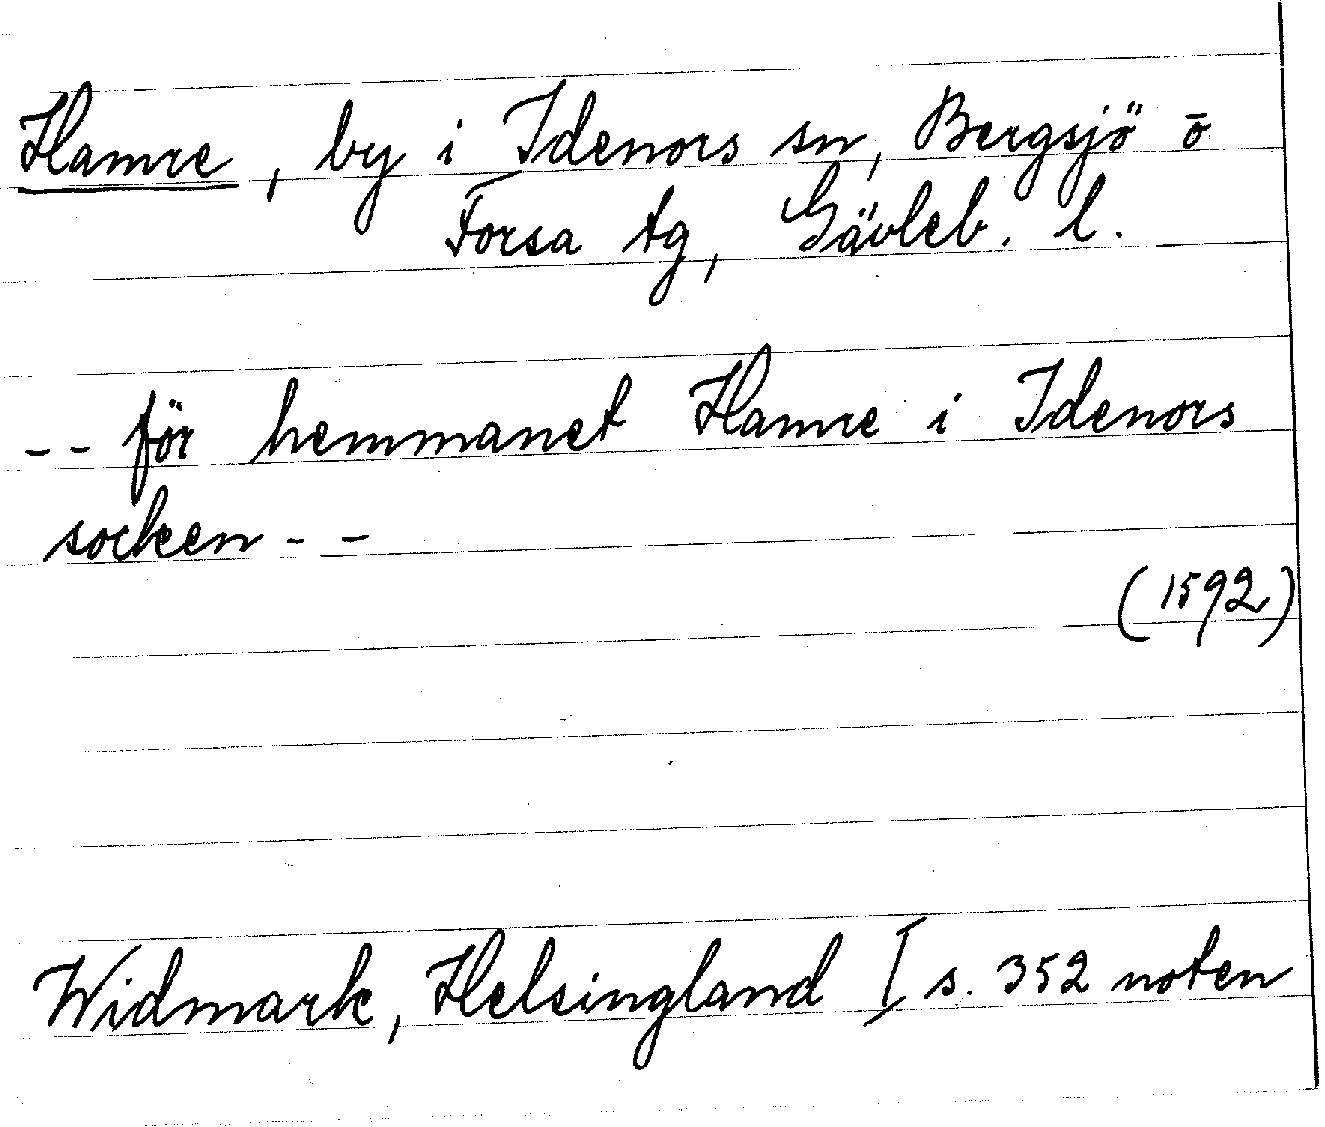 Hamre, by i Idenors sn, Bergsjö ō
Forsa tg, Gävleb. l.
-- för hemmanet Hamre i Idenors
socken --
(1592)
Widmark, Helsingland I s. 352 noten